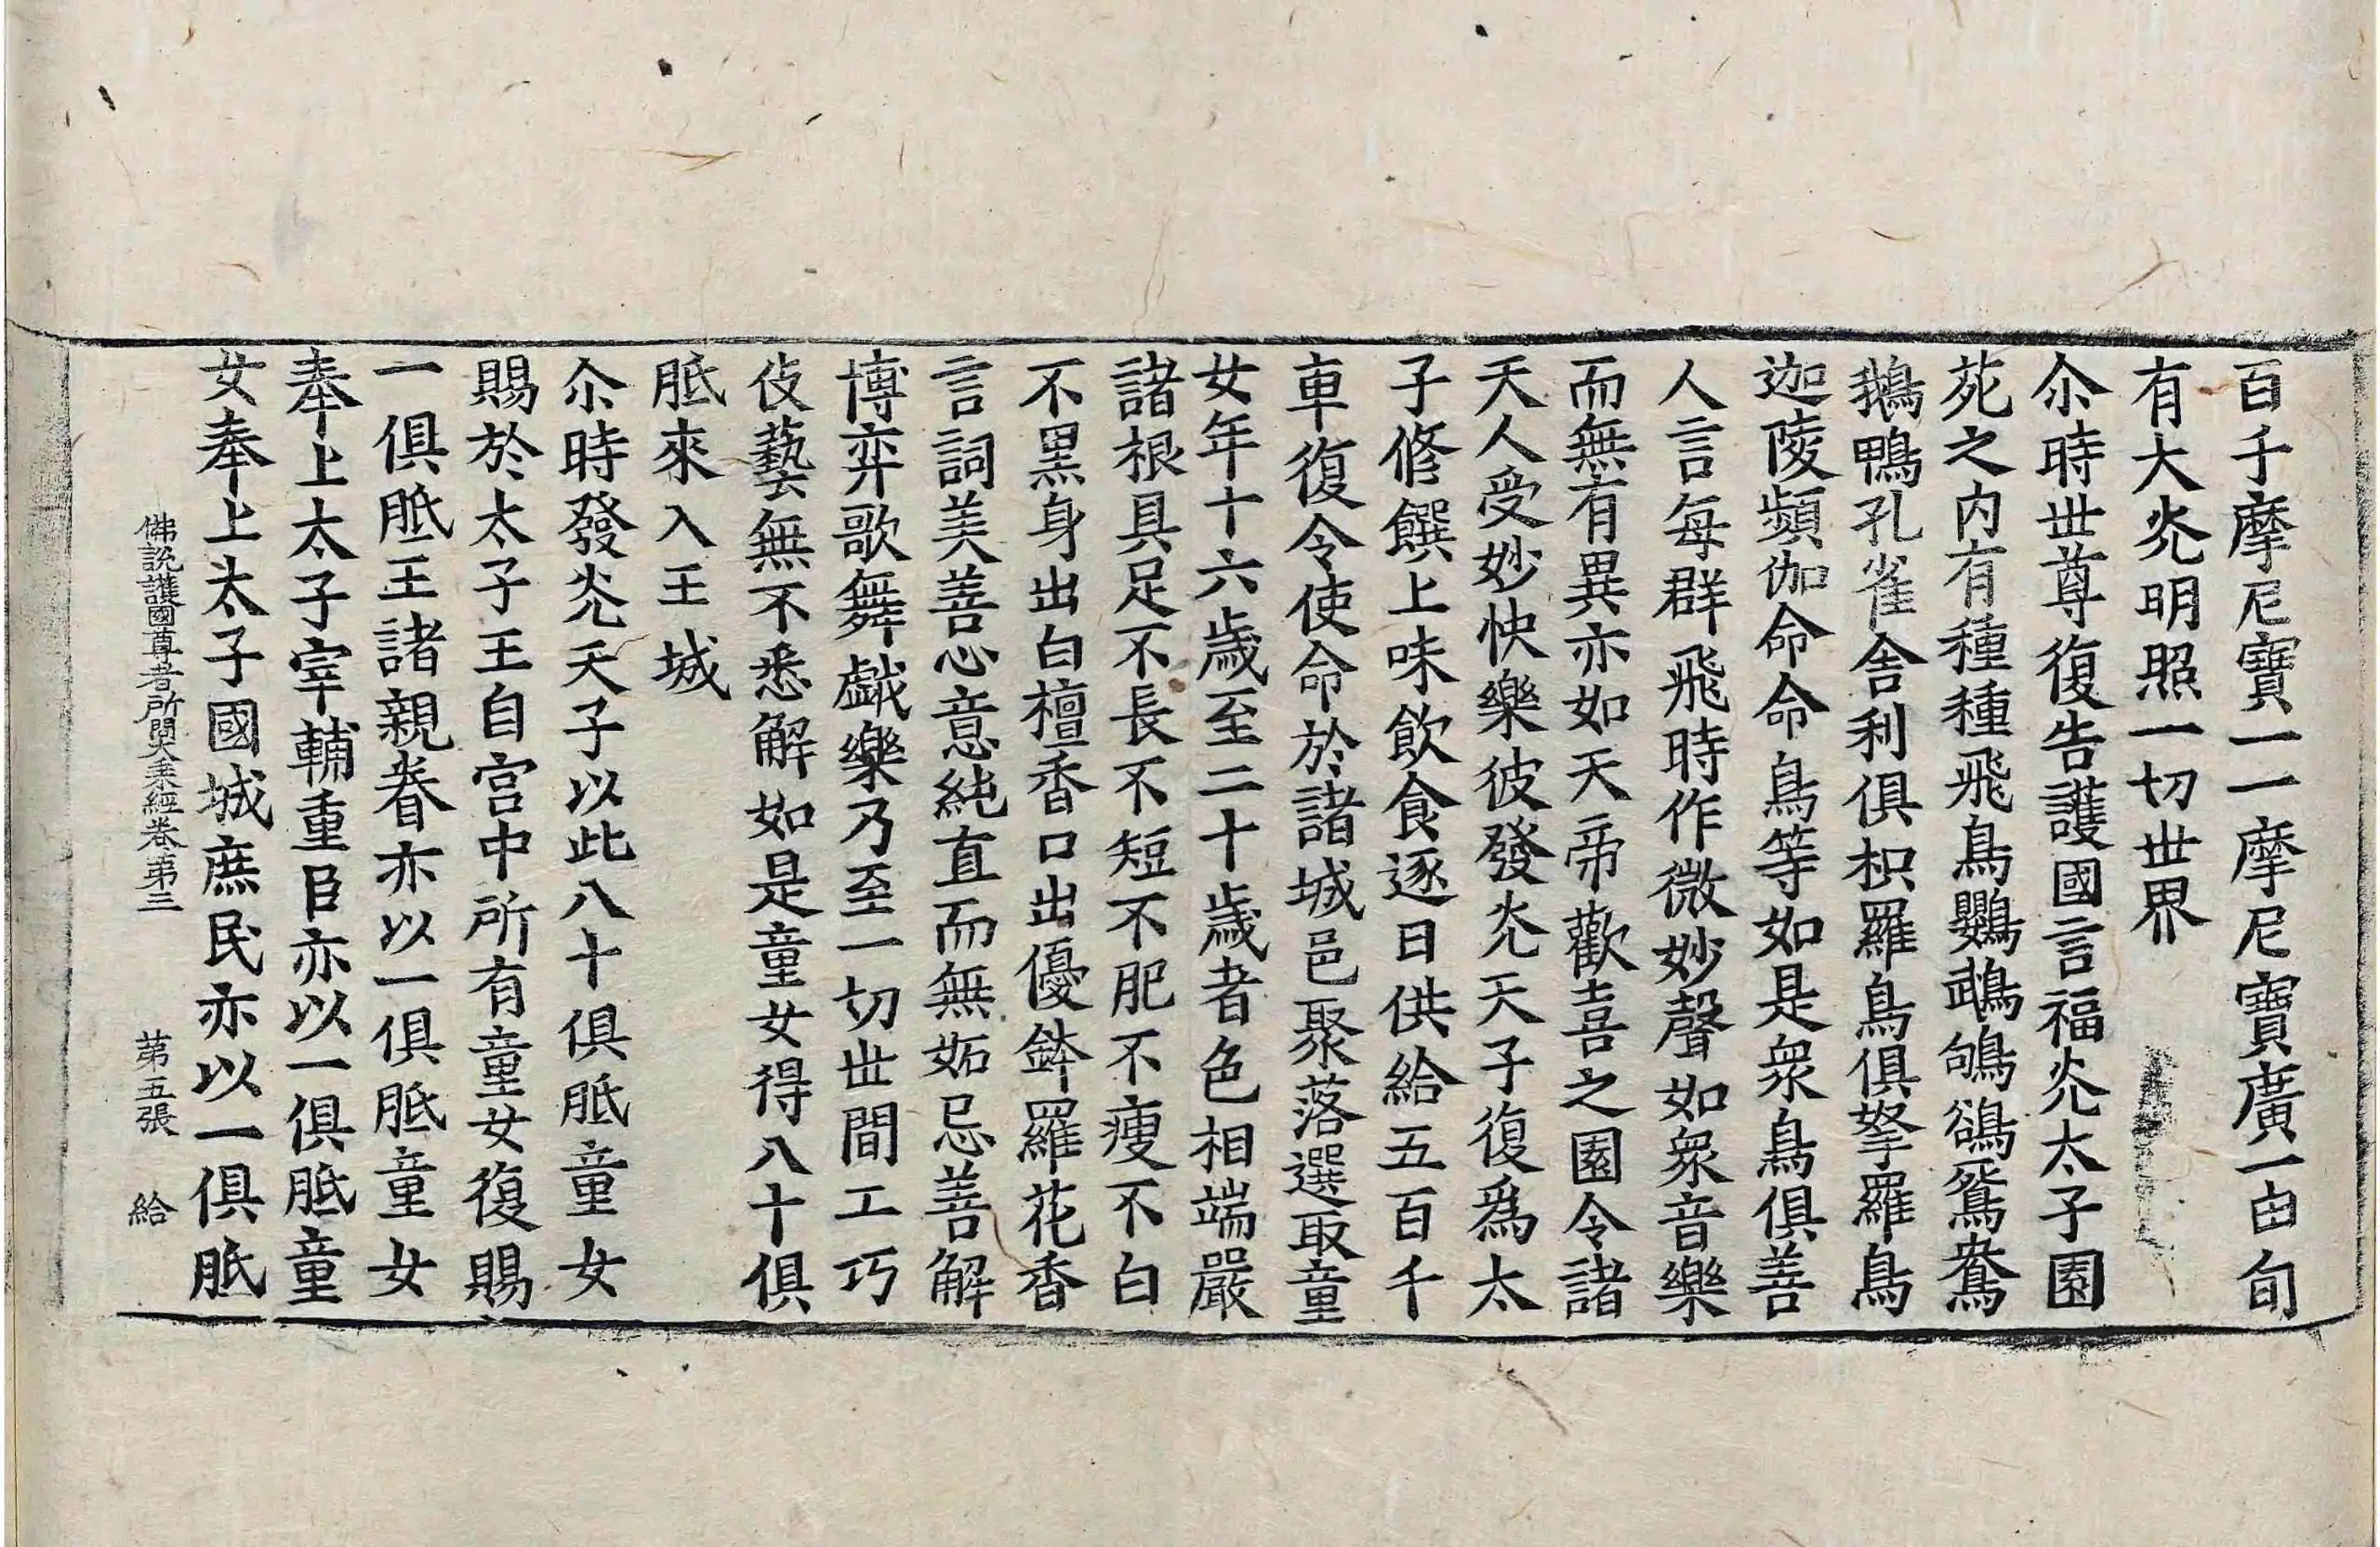 百千摩尼寶一一摩尼寶廣一由旬
有大光明照一切世界
尒時世尊復告護國言福光太子園
苑之内有種種飛鳥鸚鵡鴝鵒鴛鴦
鵝鴨孔雀舎利俱枳羅鳥俱拏羅鳥
迦陵頻伽命命鳥等如是衆鳥俱善
人言每群飛時作微妙聲如衆音樂
而無有異亦如天帝歡喜之園令諸
天人受妙快樂彼發光天子復爲太
子修饌上味飲食逐日供給五百千
車復令使命於諸城邑聚落選取童
女年十六歲至二十歲者色相端嚴
諸根具足不長不短不肥不瘦不白
不黑身出白檀香口出優鉢羅花香
言詞美善心意純直而無妬忌善解
博弈歌舞戲樂乃至一切世間工巧
伎藝無不悉解如是童女得八十俱
胝來入王城
尒時發光天子以此八十俱胝童女
賜於太子王自宫中所有童女復賜
一俱胝王諸親眷亦以一俱胝童女
奉上太子宰輔重臣亦以一俱胝童
女奉上太子國城庶民亦以一俱胝
佛説護國尊者所問大乘經卷第三 第五張 給